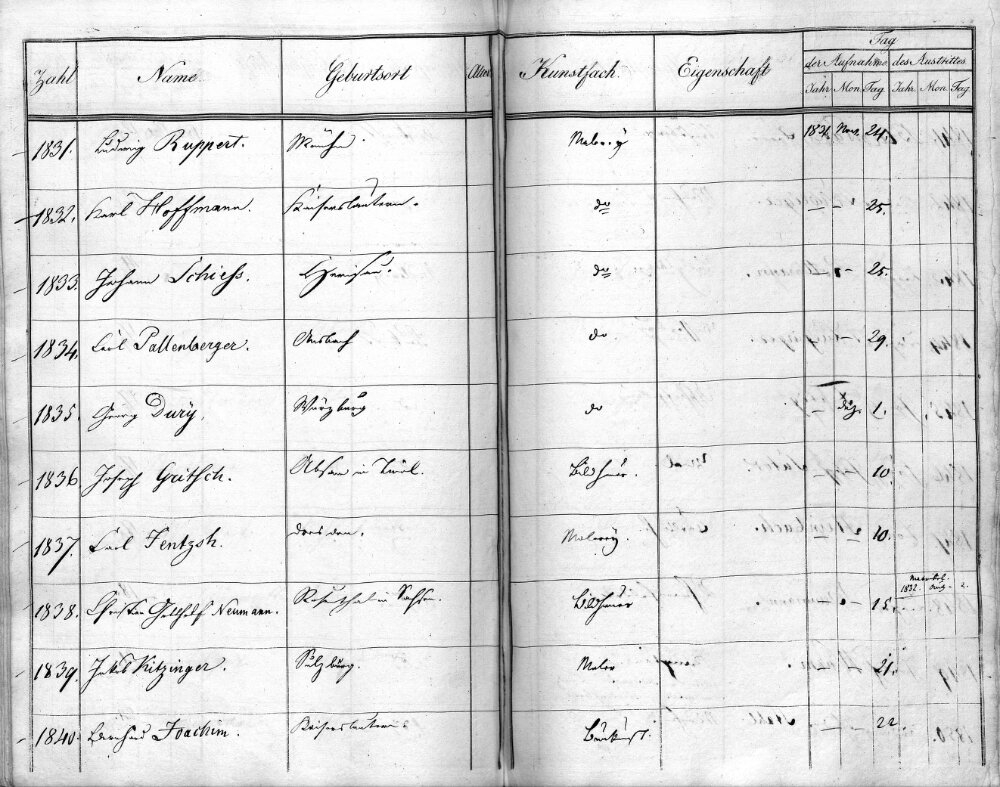 Zahl Name Geburtsort Alter Kunstfach. Eigenschaft Tag
der Aufnahme des Austrittes
Jahr Mon Tag Jahr. Mon. Tag.
1831. Ludwig Ruppert. München. Malerey 1831. Nov. 24.
1832. Karl Hoffmann. Kaiserslautern. do — — 25.
1833. Johann Schiess. Herisau. do — 25.
1834. Carl Pallenberger. Ansbach do 29.
1835. Georg Dury. Würzburg do Dez. 1.
1836 Joseph Gritsch. Absam in Tirol. Bildhauer. 10.
1837. Carl Jentzsh. Dresden. Malerey. 10.
1838. Christian Gotthelf Neumann. Rosenthal in Sachsen. Bildhauer 15. 1832. 2.
1839. Jakob Kitzinger. Salzburg. Maler 21.
1840. Bernhard Joachim. Kaiserslautern. Baukunst. 22.